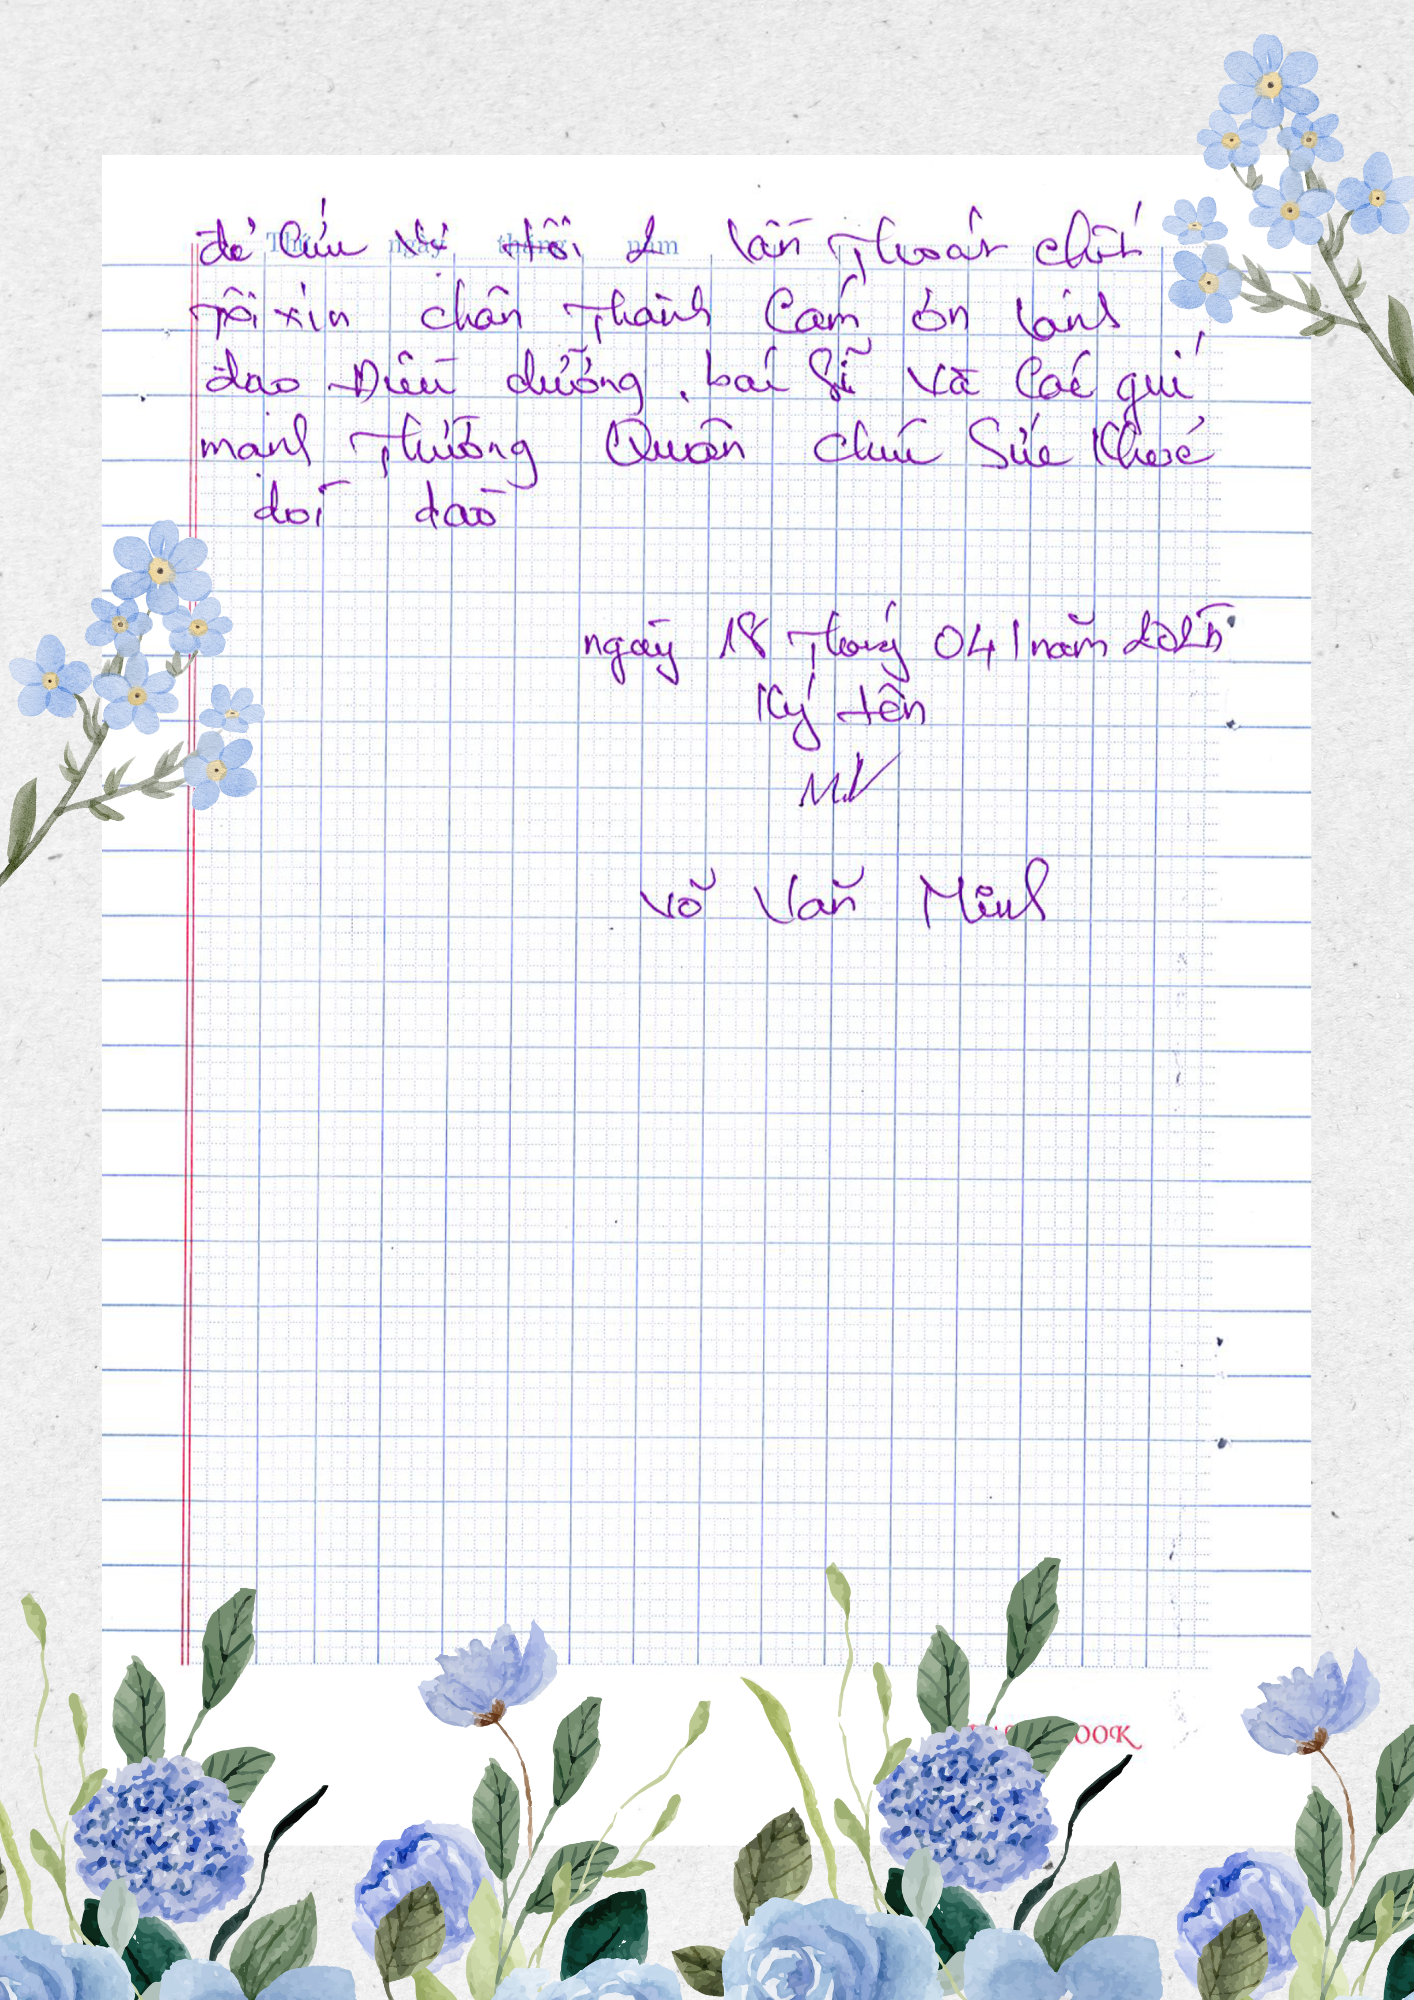 để cứu tôi 2 lần thoát chết
Tôi xin chân thành cảm ơn lãnh
đạo Điều dưỡng, bác sĩ và các quí
mạnh thường Quân chúc sức khoẻ
dồi dào
ngày 18 tháng 04 năm 2025
Ký tên
M.V
Võ Văn Minh